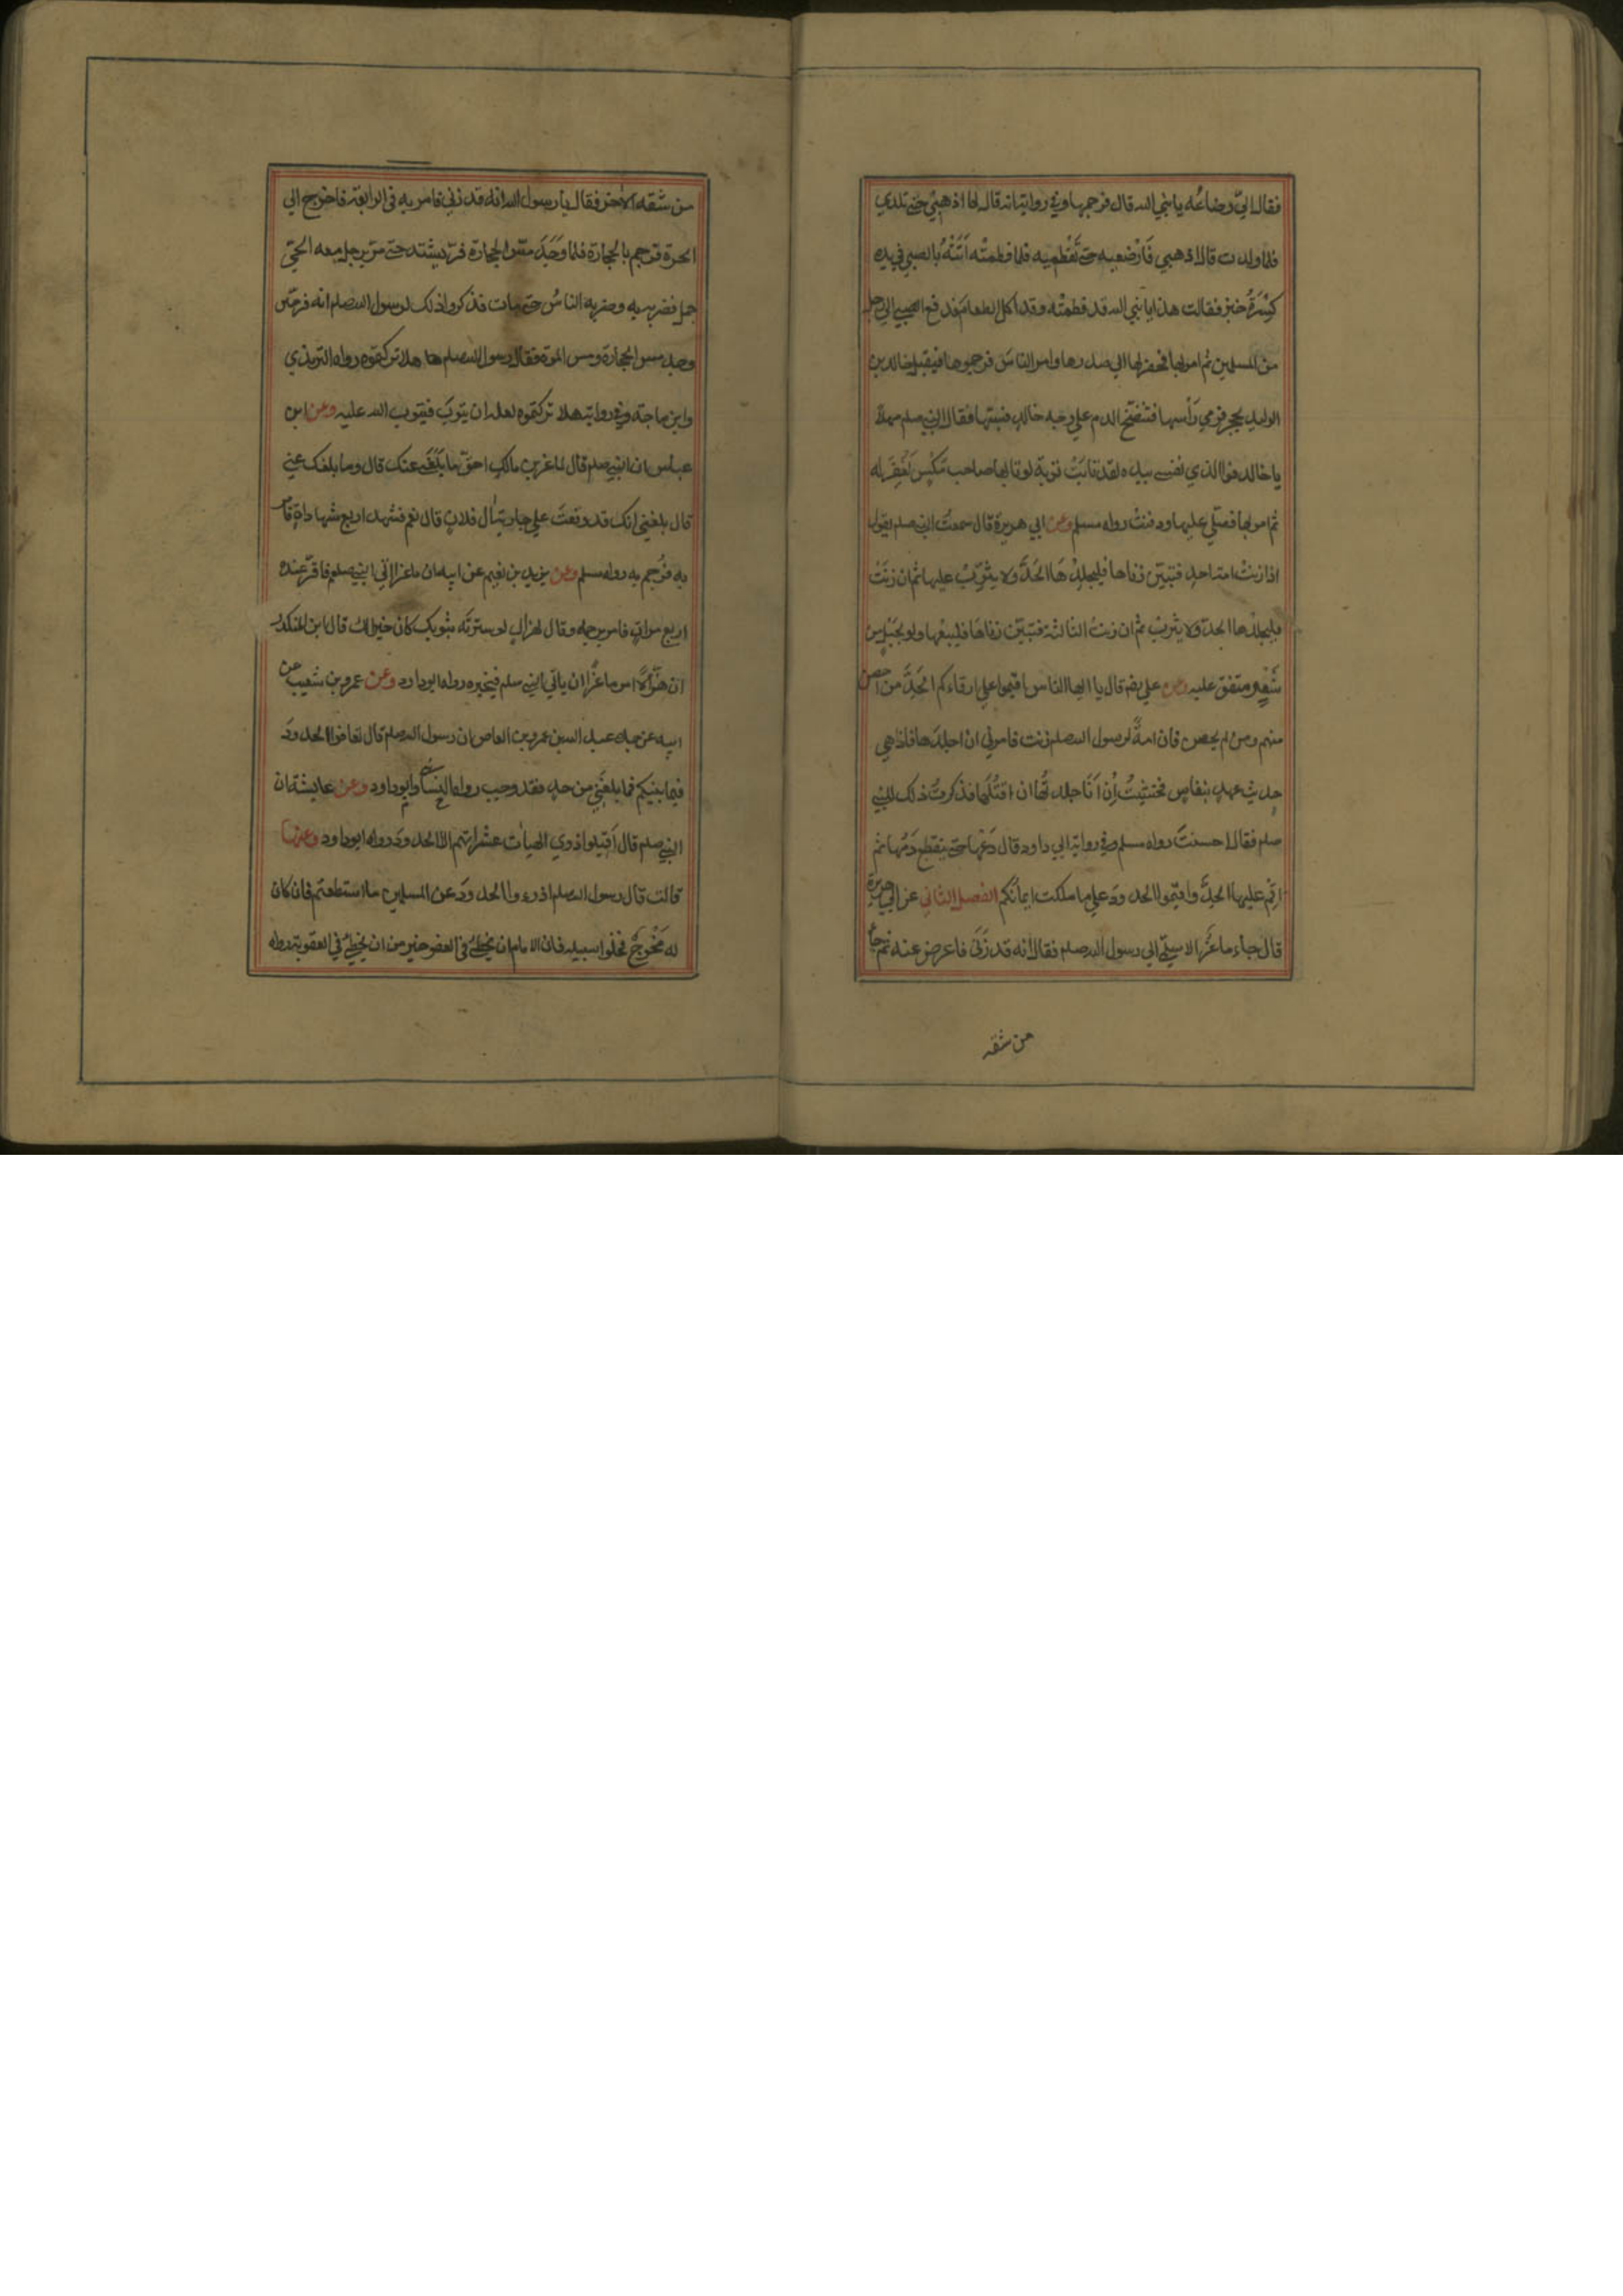 فقال الي رضاعه يا نبي الله قال فرجمها وفي رواية انه قال لها اذهبي حتى تلدي
فلما ولدت قال اذهبي فَارْضعيه حتى تَفْطميه فلما فطمتْه اَتَتْهُ بالصبي في يده
كِسْرَةُ خبز فقالت هذا يا نبي الله قد فطمتْه وقد اكل الطعام فدفع الصبي الى رجل
من المسلمين ثم امر بها فحفر لها الي صدرها وامر الناس فرجموها فيقبل خالد بن
الوليد بحجر فرمي رَأسها فتنضّخ الدم علي وجه خالد فسبّها فقال النبي صلعم مهلا
يا خالد فوا الذي نفسي بيده لقد تابَتْ توبة لو تابها صاحب مَكْسٍ لَغُفِرَ له
ثم امر بها فصلّي عليها ودفنت رواه مسلم وعن ابي هريرة قال سمعت النبي صلعم يقول
اذا زنتْ امة احدكم فتبيّن زناها فليجلدْهَا الحَدَّ ولا يثرِّبْ عليها ثم ان زَنَتْ
فليجلدْها الحدّ ولا يثرّبْ ثم ان زنت الثالثة فتبيّن زناهَا فليبعْها ولو بحَبْلٍ من
شَعْرٍ متفق عليه وعن علي رضه قال يا ايها الناس اقيموا علي ارقاءكم الحَدَّ من احصن
منهم ومن لم يحصن فان امةً لرسول الله صلعم زنت فامرني ان اجلدَها فاذا هي
حديث عهدٍ بنفاس فخشيتُ اِنْ اَنَا جلدتُّها ان اقتُلَها فذكرتُ ذلك للنبي
صلعم فقال احسنتَ رواه مسلم وفي رواية ابي داود قال دَعْها حتى ينقطع دَمُها ثم
اقِمْ عليها الحدَّ واقيموا الحدودَ علي ما ملكت ايمانُكم الفصل الثاني عن ابي هريرة
قال جاء ماعزُ الاسلمي الي رسول الله صلعم فقال انه قد زَنَى فاعرض عنه ثم جاء
من شقه
من شقه الاخر فقال يا رسول الله انه قد زني فامر به في الرابعة فاخرج الي
الحرة فرجم بالحجارة فلما وَجَدَ مسّ الحجارة فرّ يشتد حتى مرّ برجل معه لحي
جمل فضربه به وضربه الناسُ حتى مات فذكروا ذلك لرسول الله صلعم انه فرحين
وجد مس الحجارة ومس الموت فقال رسول الله صلعم هلا تركتموه رواه الترمذي
وابن ماجة وفي رواية هلا تركتموه لعله ان يتوبَ فيتوب الله عليه وعن ابن
عباس ان النبي صلعم قال لماعز بن مالك احقّ ما بَلَغَني عنك قال وما بلغك عني
قال بلغني انك قد وقعتَ علي جارية اٰل فلانٍ قال نعم فشهد اربع شهاداةٍ فامر
به فرُجم به رواه مسلم وعن يزيد بن نعيم عن ابيه ان ماعزا اتي النبي صلعم فاقرّ عنده
اربع مراتٍ فامر برجمه وقال لهزالٍ لو سترتَه بثوبك كان خيرا لك قال ابن المنكدر
ان هَزّالًا امر ماعزًا ان ياتي النبي صلعم فيخبره رواه ابو داود وعن عمرو بن شعيب عن
ابيه عن جده عبد الله بن عمرو بن العاص ان رسول الله صلعم قال تعافوا الحدودَ
فيما بينكم فما بلغني من حدٍ فقد وجب رواه النسائي وابو داود وعن عايشة ان
النبي صلعم قال اَقيلوا ذوي الهيآت عثراتهم الا الحدودَ رواه ابو داود وعنها
قالت قال رسول الله صلعم ادرءوا الحدودَ عن المسلمين ما استطعتم فان كان
له مَخْرَجٌ فخلوا سبيله فان الامام ان يخطئَ في العفو خير من ان يخطئَ في العقوبة رواه